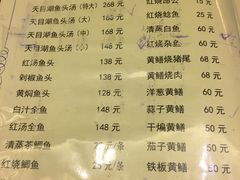 天目湖鱼头汤（特大） 268 元
天目湖鱼头汤（大）
天目湖鱼头汤（中） 168 元
天目湖鱼头汤（小） 148 元
红汤鱼头 148 元
剁椒鱼头 168 元
黄焖鱼头 128 元
白汁全鱼 148 元
红汤全鱼 148 元
清蒸茶鲷鱼 25元/条
红烧鲫鱼 25元/条
元
红烧鲶鱼 25 元
清蒸白鱼 60 元
红烧杂鱼 60 元
黄鳝烧猪尾 68 元
黄鳝烧肉 68 元
洋葱黄鳝 60 元
蒜子黄鳝 60 元
干煸黄鳝 60 元
茄子黄鳝 50 元
铁板黄鳝 60 元